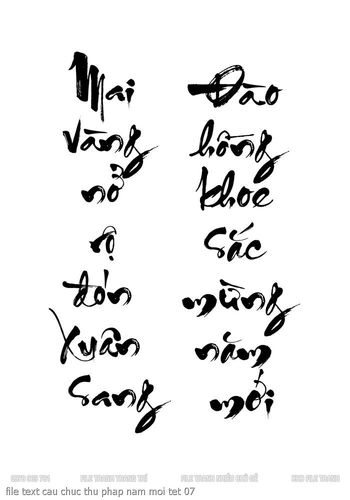 Mai
vàng
nở
rộ
đón
Xuân
sang
Đào
hồng
khoe
sắc
mừng
năm
mới
FILE TRANH TRANG TRÍ
file text cau chuc thu phap nam moi tet 07